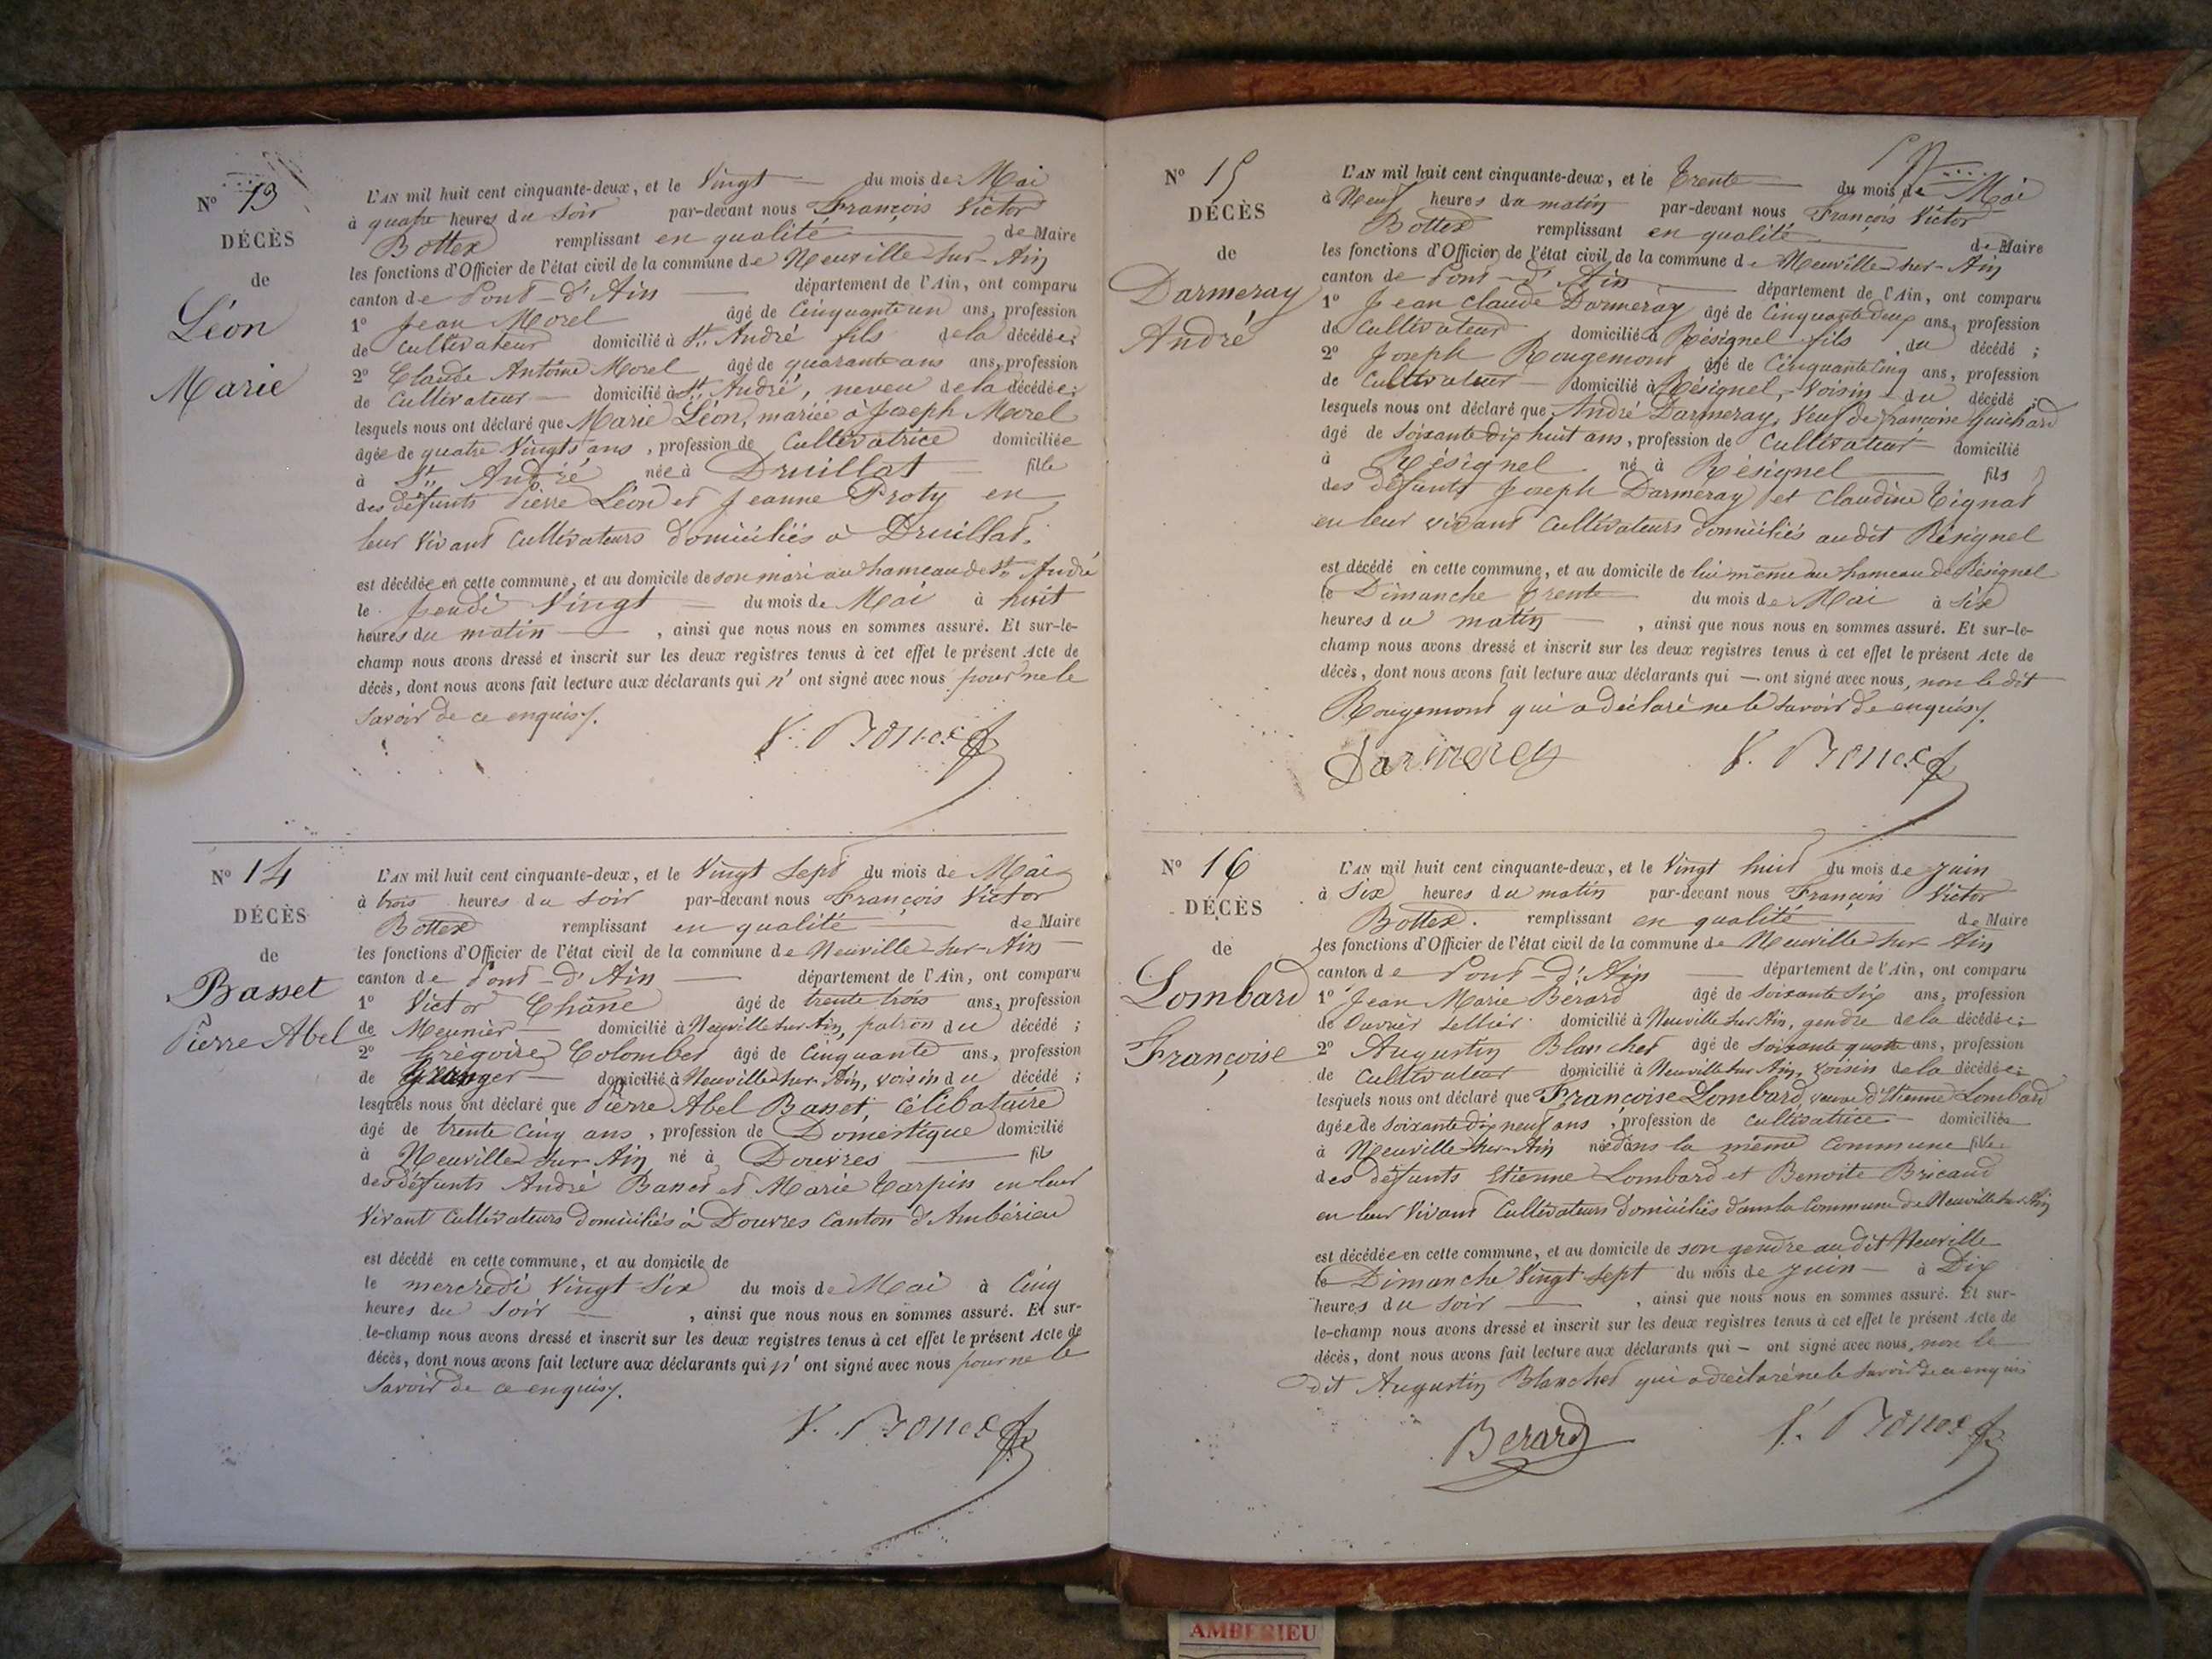 Nº 13
DÉCÈS
de
Léon
Marie
L'AN mil huit cent cinquante-deux, et le Vingt du mois de Mai
à quatre heures du Soir par-devant nous François Victor
Bottex remplissant en qualité de Maire
les fonctions d'Officier de l'état civil de la commune de Neuville sur-Ain
canton de Pont-d'Ain département de l'Ain, ont comparu
1º Jean Morel âgé de Cinquante un ans, profession
de Cultivateur domicilié à St. André fils de la décédée;
2º Claude Antoine Morel âgé de quarante ans ans, profession
de Cultivateur domicilié à St. André, neveu de la décédée;
lesquels nous ont déclaré que Marie Léon, mariée à Joseph Morel
âgée de quatre Vingts ans, profession de Cultivatrice domiciliée
à St. André née à Druillat fille
des défunts Pierre Léon et Jeanne Proty en
leur Vivant Cultivateurs domiciliés à Druillat.
est décédée en cette commune, et au domicile de son mari au hameau de St. André
le Jeudi Vingt du mois de Mai à huit
heures du matin, ainsi que nous nous en sommes assuré. Et sur-le-
champ nous avons dressé et inscrit sur les deux registres tenus à cet effet le présent Acte de
décès, dont nous avons fait lecture aux déclarants qui n'ont signé avec nous pour ne le
Savoir de ce enquis.
V. Bottex
Nº 14
DÉCÈS
de
Basset
Pierre Abel
L'AN mil huit cent cinquante-deux, et le Vingt Sept du mois de Mai
à trois heures du Soir par-devant nous François Victor
Bottex remplissant en qualité de Maire
les fonctions d'Officier de l'état civil de la commune de Neuville-sur-Ain
canton de Pont-d'Ain département de l'Ain, ont comparu
1º Victor Châne âgé de trente trois ans, profession
de Meunier domicilié à Neuville sur Ain, patron du décédé;
2º Grégoire Colombet âgé de Cinquante ans, profession
de Granger domicilié à Neuville-sur-Ain, voisin du décédé;
lesquels nous ont déclaré que Pierre Abel Basset, Célibataire
âgé de trente Cinq ans, profession de Domestique domicilié
à Neuville sur Ain né à Douvres fils
des défunts André Basset et Marie Tarpin en leur
Vivant Cultivateurs domiciliés à Douvres Canton d'Ambérieu
est décédé en cette commune, et au domicile de
le mercredi Vingt Six du mois de Mai à Cinq
heures du Soir, ainsi que nous nous en sommes assuré. Et sur-
le-champ nous avons dressé et inscrit sur les deux registres tenus à cet effet le présent Acte de
décès, dont nous avons fait lecture aux déclarants qui n'ont signé avec nous pour ne le
Savoir de ce enquis.
V. Bottex
Nº 15
DÉCÈS
de
Darmeray
André
L'AN mil huit cent cinquante-deux, et le Trente du mois de Mai
à Neuf heures du matin par-devant nous François Victor
Bottex remplissant en qualité de Maire
les fonctions d'Officier de l'état civil de la commune de Neuville-sur-Ain
canton de Pont-d'Ain département de l'Ain, ont comparu
1º Jean Claude Darmeray âgé de Cinquante deux ans, profession
de Cultivateur domicilié à Résignel fils du décédé;
2º Joseph Rougemont âgé de Cinquante Cinq ans, profession
de Cultivateur domicilié à Résignel, Voisin du décédé;
lesquels nous ont déclaré que André Darmeray, Veuf de françoise Guichard
âgé de Soixante dix huit ans, profession de Cultivateur domicilié
à Résignel né à Résignel fils
des défunts Joseph Darmeray et Claudine Tignat
en leur vivant Cultivateurs domiciliés audit Résignel
est décédé en cette commune, et au domicile de lui même au hameau de Résignel
le Dimanche Trente du mois de Mai à Six
heures du matin, ainsi que nous nous en sommes assuré. Et sur-le-
champ nous avons dressé et inscrit sur les deux registres tenus à cet effet le présent Acte de
décès, dont nous avons fait lecture aux déclarants qui ont signé avec nous, non le dit
Rougemont qui a déclaré ne le savoir de enquis.
Darmerey V. Bottex
Nº 16
DÉCÈS
de
Lombard
Françoise
L'AN mil huit cent cinquante-deux, et le Vingt huit du mois de Juin
à Six heures du matin par-devant nous François Victor
Bottex. remplissant en qualité de Maire
les fonctions d'Officier de l'état civil de la commune de Neuville sur Ain
canton de Pont-d'Ain département de l'Ain, ont comparu
1º Jean Marie Bérard âgé de Soixante Six ans, profession
de Ouvrier Sellier domicilié à Neuville sur Ain, gendre de la décédée;
2º Augustin Blanchet âgé de Soixante quatre ans, profession
de Cultivateur domicilié à Neuville sur Ain, voisin de la décédée;
lesquels nous ont déclaré que Françoise Lombard, veuve d'Etienne Lombard
âgée de Soixante dix neuf ans, profession de Cultivatrice domiciliée
à Neuville sur-Ain née dans la même Commune fille
des défunts Etienne Lombard et Benoite Bricaud
en leur Vivant Cultivateurs domiciliés dans la Commune de Neuville sur Ain
est décédée en cette commune, et au domicile de son gendre au dit Neuville
le Dimanche Vingt Sept du mois de Juin à Dix
heures du Soir, ainsi que nous nous en sommes assuré. Et sur-
le-champ nous avons dressé et inscrit sur les deux registres tenus à cet effet le présent Acte de
décès, dont nous avons fait lecture aux déclarants qui ont signé avec nous, non le
dit Augustin Blanchet qui a déclaré ne le savoir de ce enquis
Berard V. Bottex
AMBERIEU